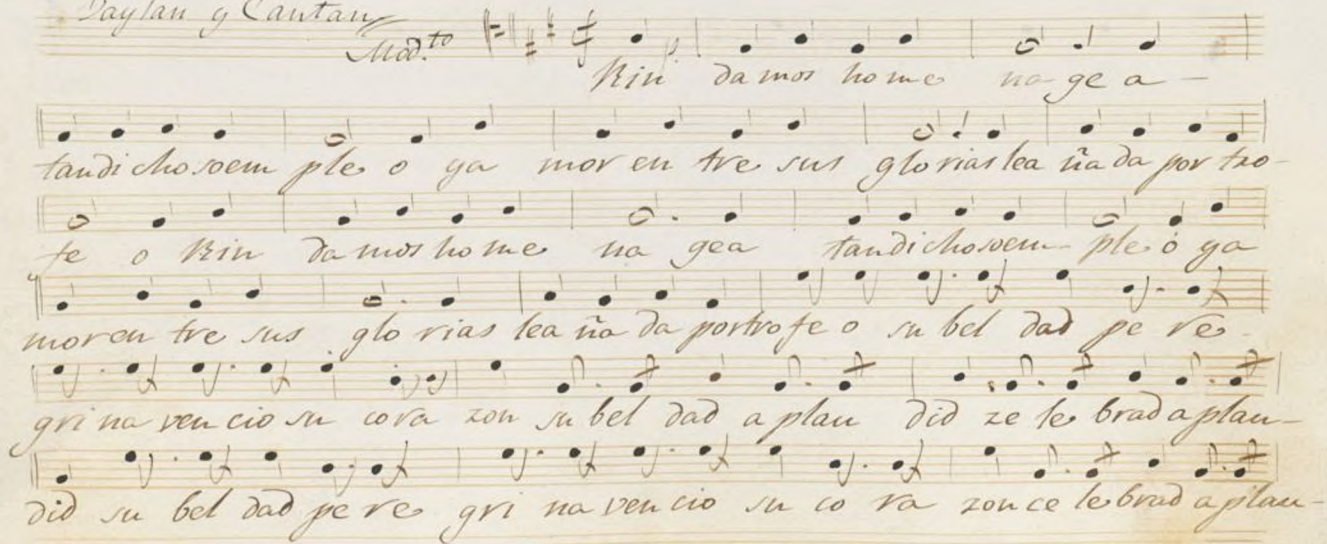 Baylan y Cantan
Mod.to
Rin damos home na-ge a-
tandichosoem ple o ya mor en tre sus glorias lea ña da por tro-
fe o Rin da mos ho me na gea tandichosoem-ple o ya
moren tre sus glo rias lea ña da portrofe o su bel dad pe re-
gri na ven cio su cora zon su bel dad a plau did ze le brad aplau-
did su bel dad pe re gri na ven cio su co ra zon ce le brad a plau-